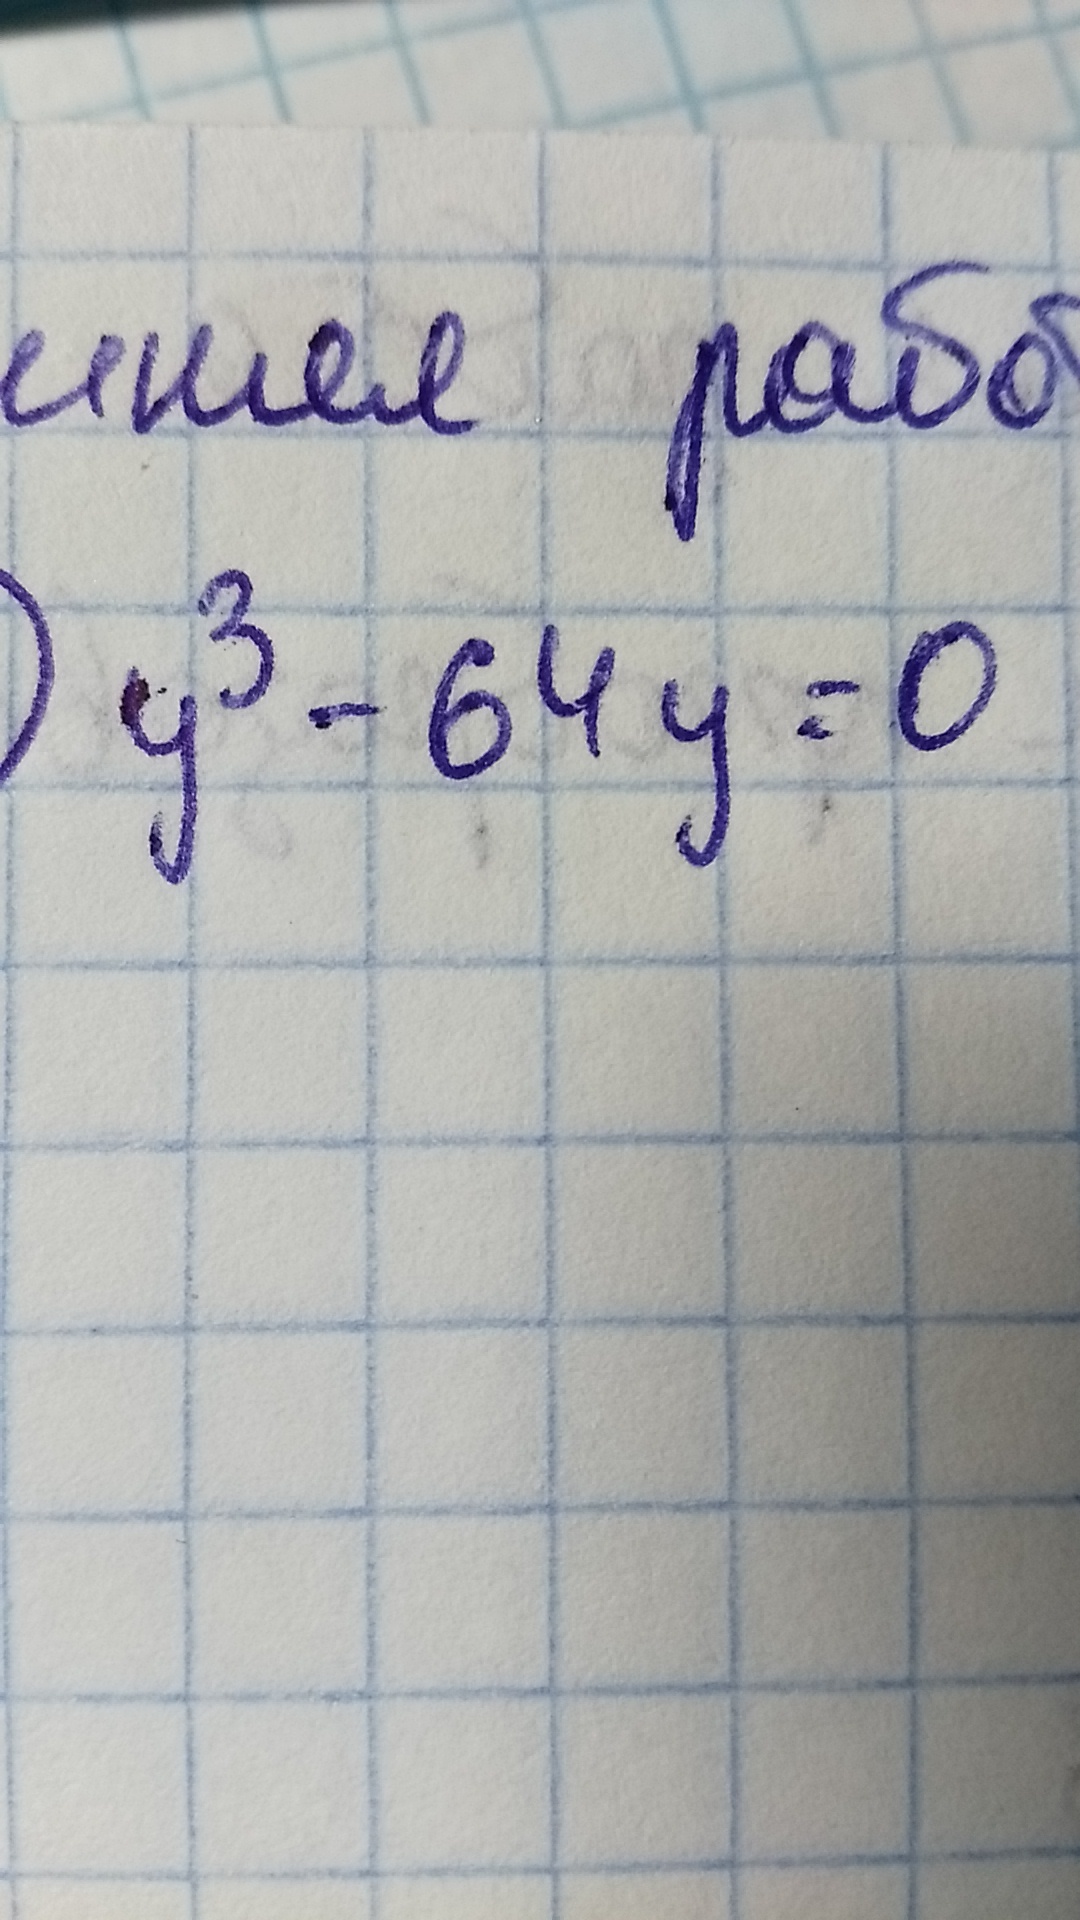 шняя работ
) y³ - 64y = 0